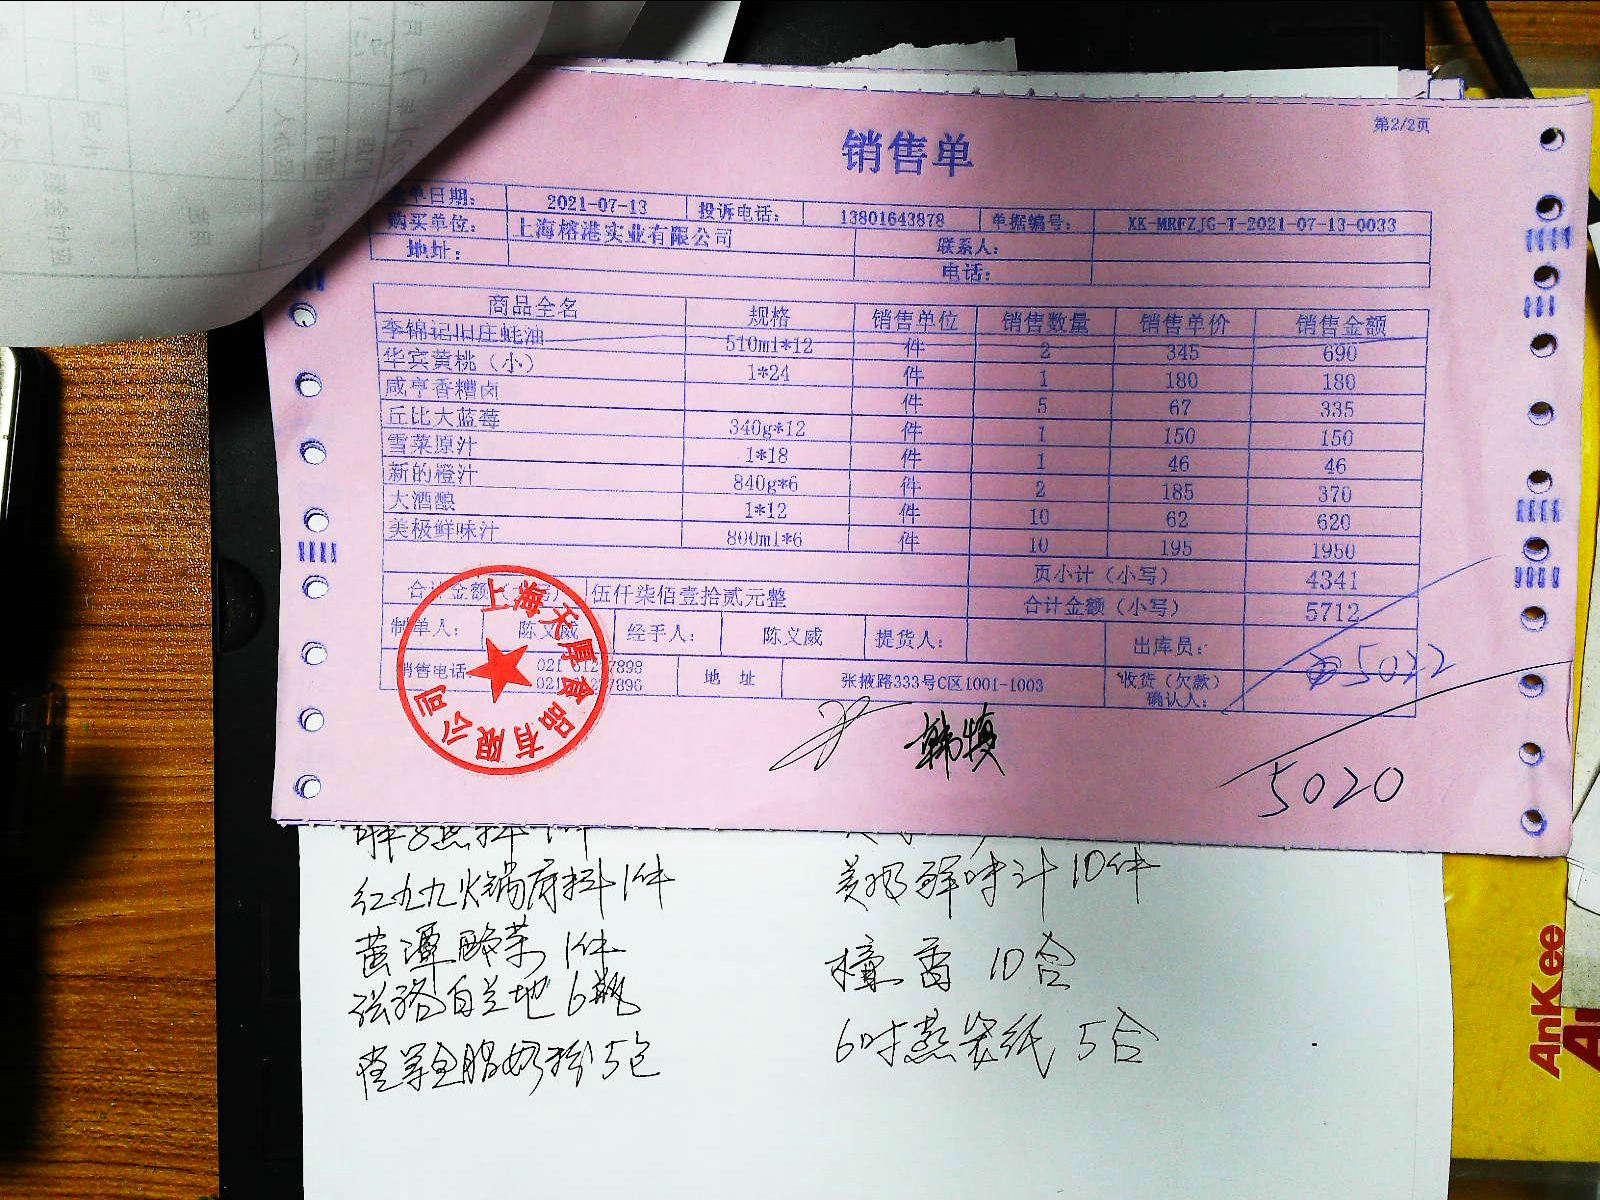 第2/2页
销售单
单日期： 2021-07-13 投诉电话： 13801643878 单据编号： XK-MRFZJG-T-2021-07-13-0033
购买单位： 上海榕港实业有限公司 联系人：
地址： 电话：
商品全名 规格 销售单位 销售数量 销售单价 销售金额
李锦记旧庄蚝油 510ml*12 件 2 345 690
华宾黄桃（小） 1*24 件 1 180 180
咸亨香糟卤 件 5 67 335
丘比大蓝莓 340g*12 件 1 150 150
雪菜原汁 1*18 件 1 46 46
新的橙汁 840g*6 件 2 185 370
大酒酿 1*12 件 10 62 620
美极鲜味汁 800ml*6 件 10 195 1950
页小计（小写） 4341
合计金额（大写） 伍仟柒佰壹拾贰元整 合计金额（小写） 5712
制单人： 陈义威 经手人： 陈义威 提货人： 出库员：
销售电话 地 址 张掖路333号C区1001-1003 收货（欠款）确认人：
上海天厚食品有限公司
5022
5020
红九九火锅底料1件
美极鲜味汁10件
6吋蒸笼纸 5合
AnKee